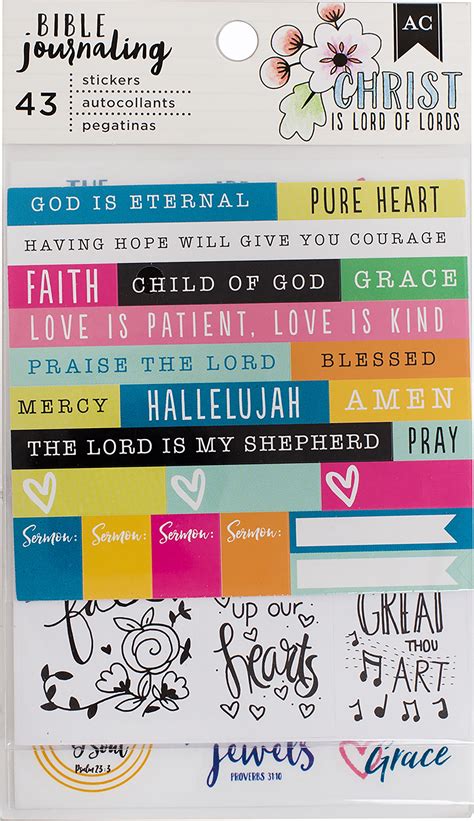 BIBLE
journaling
43
stickers
autocollants
pegatinas
AC
CHRIST
IS LORD OF LORDS
GOD IS ETERNAL PURE HEART
HAVING HOPE WILL GIVE YOU COURAGE
FAITH CHILD OF GOD GRACE
LOVE IS PATIENT, LOVE IS KIND
PRAISE THE LORD BLESSED
MERCY HALLELUJAH AMEN
THE LORD IS MY SHEPHERD PRAY
Sermon: Sermon: Sermon: Sermon:
up our
hearts
GREAT
THOU
ART
& Soul
Psalm 23:3
jewels
PROVERBS 31:10
Grace